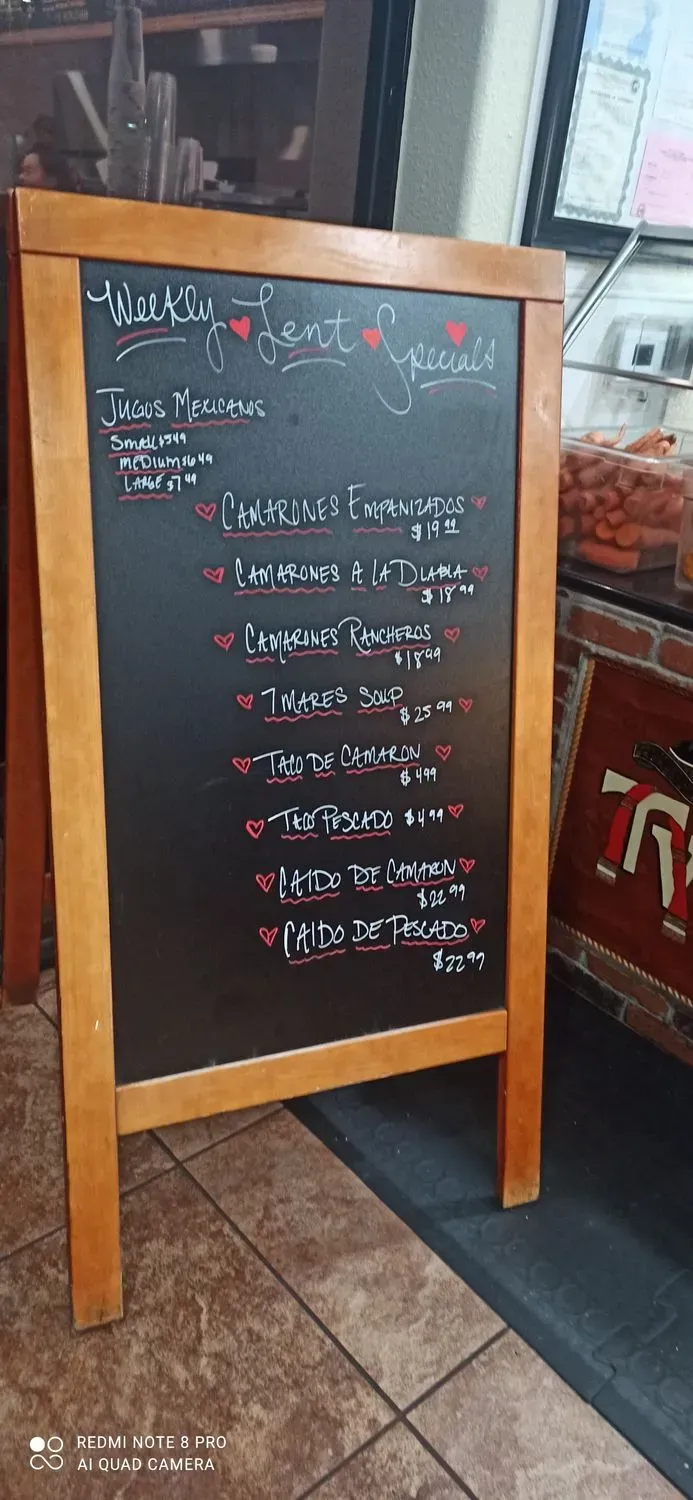 Weekly Lent Specials
JUGOS MEXICANOS
Small $549
MEDIUM $649
LARGE $749
CAMARONES EMPANIZADOS
$1999
CAMARONES A LA DIABLA
$1899
CAMARONES RANCHEROS
$1899
7 MARES SOUP
$2599
TACO DE CAMARON
$499
TACO PESCADO $499
CALDO DE CAMARON
$2299
CALDO DE PESCADO
$2299
REDMI NOTE 8 PRO
AI QUAD CAMERA